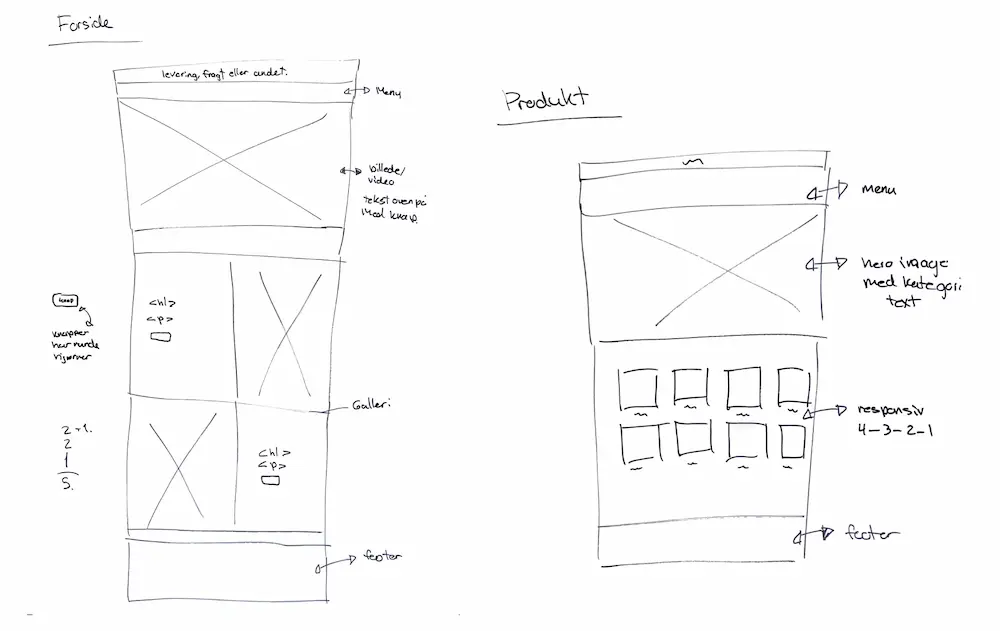 Forside
levering, fragt eller andet.
Menu
billede/
video
tekst oven på
med knap.
<h1>
<p>
knap
knapper
har runde
hjørner
Galleri
2+1.
2
1
5.
<h1>
<p>
footer
Produkt
menu
hero image
med kategori
text
responsiv
4-3-2-1
footer